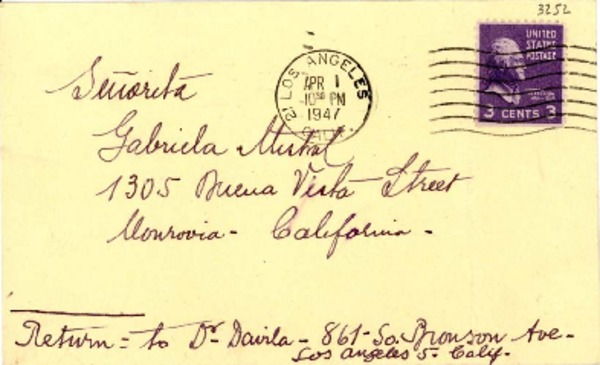 3252
UNITED
STATES
POSTAGE
3 CENTS 3
LOS ANGELES
APR 1
10 30 PM
1947
CALIF.
Señorita
Gabriela Mistral
1305 Buena Vista Street
Monrovia - California -
Return = to Dr. Davila - 861 - So. Bronson Ave -
Los Angeles 5 - Calif -